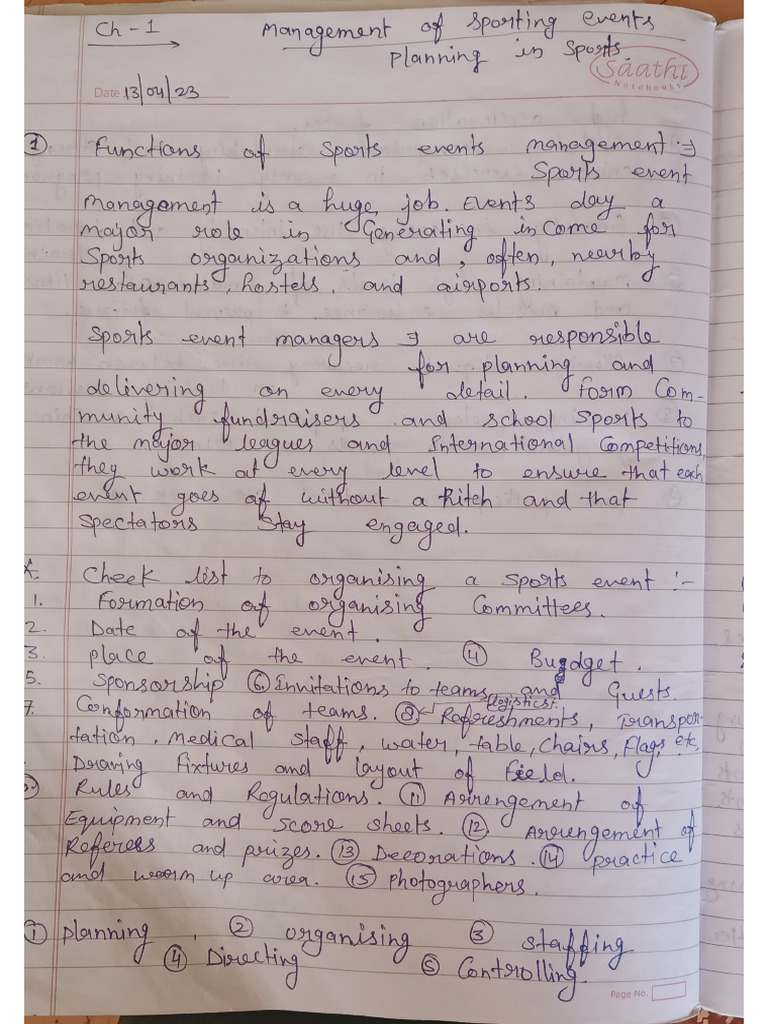 Ch - 1
Management of Sporting events
Planning in Sports.
Saathi
Notebooks
Date 13/04/23
① Functions of Sports events management ⇒
Sports event
management is a huge job. Events day a
major role in Generating income for
Sports organizations and, often, nearby
restaurants, hostels, and airports.
Sports event managers ⇒ are responsible
for planning and
delivering on every detail. Form Com-
munity fundraisers and school sports to
the major leagues and International Competitions,
they work at every level to ensure that each
event goes of without a hitch and that
Spectators Stay engaged.
Check list to organising a sports event :-
1. Formation of organising Committees.
2. Date of the event.
3. Place of the event. ④ Budget.
5. Sponsorship ⑥ Invitations to teams and Guests.
7. Conformation of teams. ⑧ Refreshments, Transpor-
logistics:
tation, Medical staff, water, table, chairs, Flags etc.
Drawing fixtures and layout of field.
Rules and Regulations. ⑪ Arrengement of
Equipment and score sheets. ⑫ Arrengement of
Referess and prizes. ⑬ Decorations. ⑭ practice
and warm up area. ⑮ photographers.
① Planning, ② organising ③ staffing
④ Directing ⑤ Controlling.
Page No.